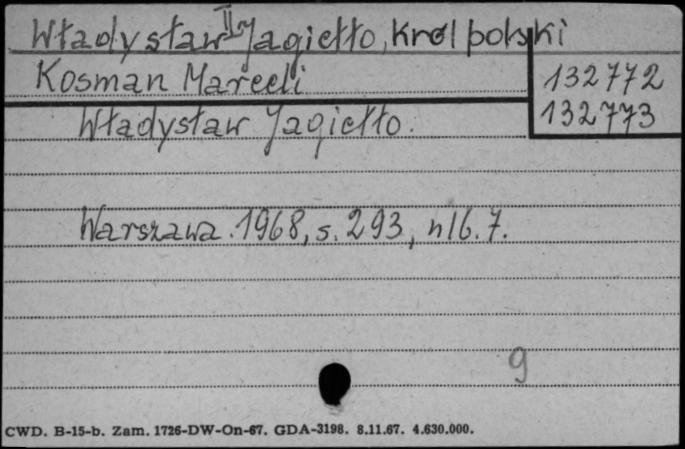 Władysław II Jagiełło, Król polski
Kosman Marceli
132772
132773
Władysław Jagiełło.
Warszawa. 1968, s. 293, nlb. 7.
9
CWD. B-15-b. Zam. 1726-DW-On-67. GDA-3198. 8.11.67. 4.630.000.